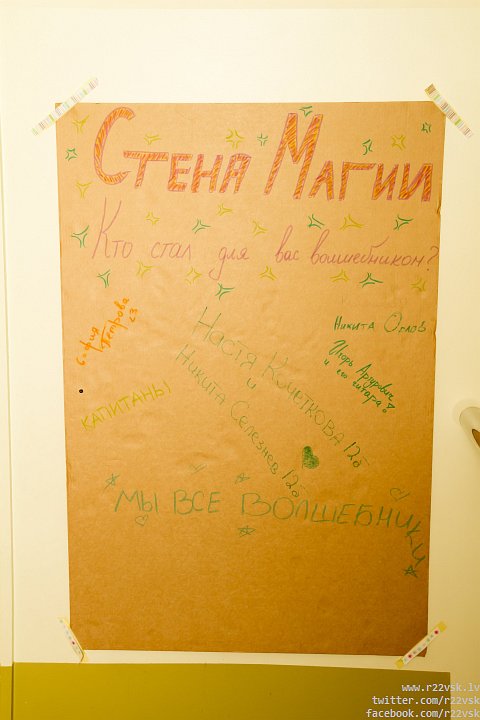 Стена Магии
Кто стал для вас волшебником?
София
Петрова
<3
Никита Орлов
Игорь Артурович
и его гитара!
Настя Кочеткова 12б
и
Никита Селезнев 12б
КАПИТАНЫ
МЫ ВСЕ ВОЛШЕБНИКИ
www.r22vsk.lv
twitter.com/r22vsk
facebook.com/r22vsk